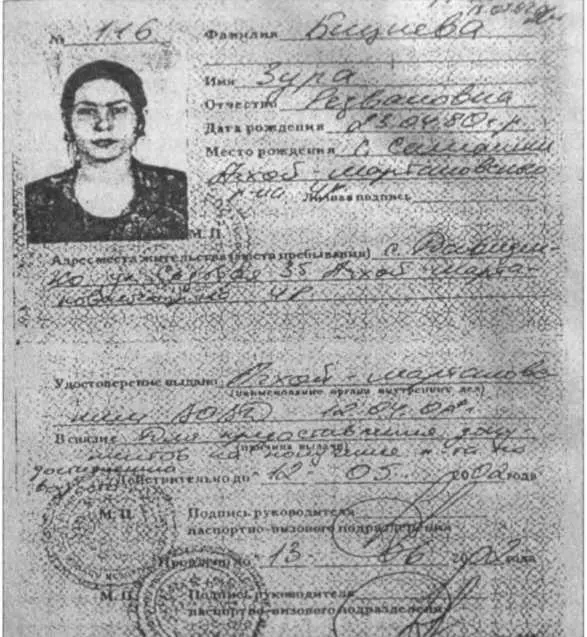 № 116
Фамилия Бициева
Имя Зура
Отчество Резвановна
Дата рождения 23.04.80 г.р.
Место рождения с. Самашки
Ачхой-Мартановского
р-на ЧР.
Личная подпись
М. П.
Адрес места жительства (места пребывания) с.
ул. 35 Ачхой-Марта-
новского р-на ЧР.
Удостоверение выдано Ачхой-Мартанов
(наименование органа внутренних дел)
ским 12.04.02г.
В связи с для
(причина выдачи)
на получение п-та по
достижению
Действительно до "12" 05 2002 года
М. П.
Подпись руководителя
паспортно-визового подразделения
Продлено до "13" 06 2002 года
М. П.
Подпись руководителя
паспортно-визового подразделения